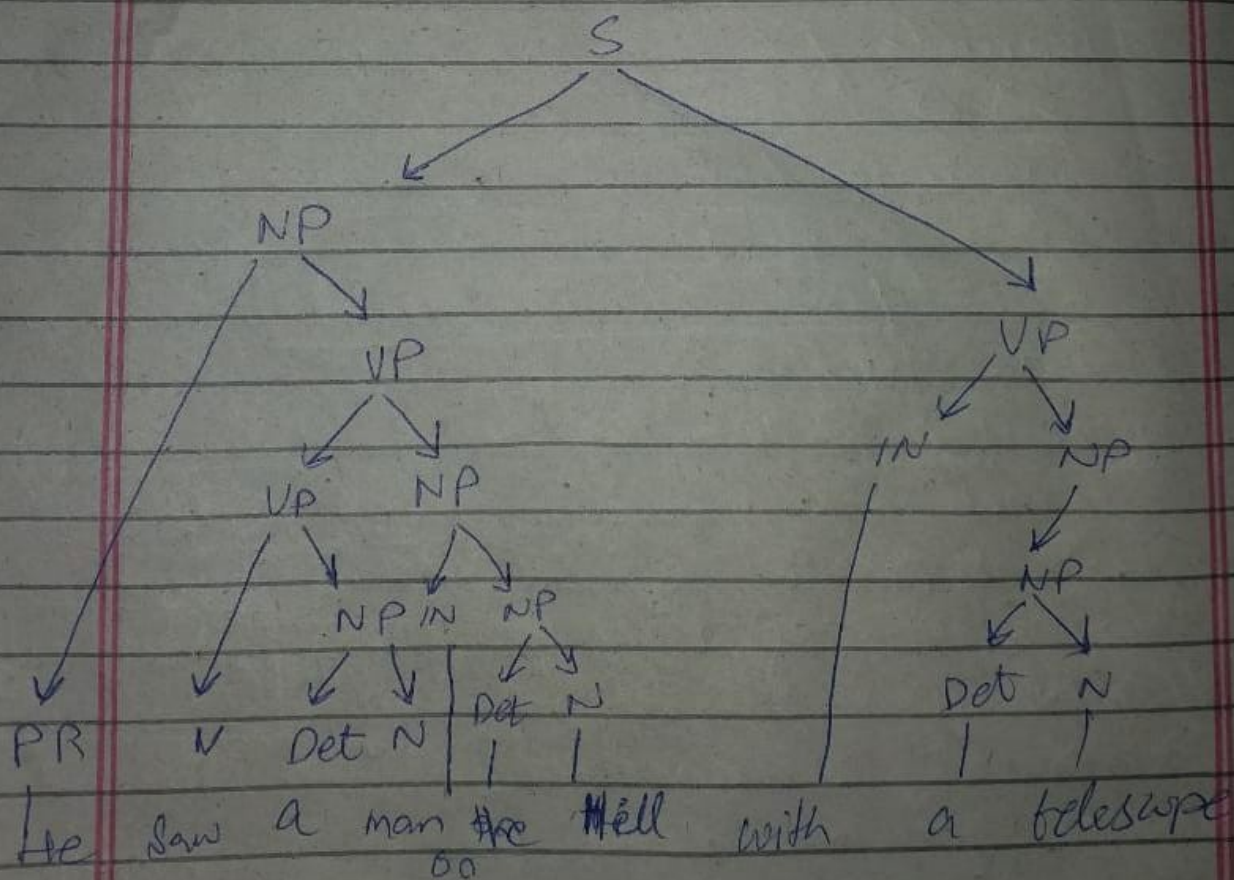 S
NP
VP
VP
IN NP
VP NP
NP
NP IN NP
Det N
Det N
PR V Det N
He saw a man the Hill with a telescope
on